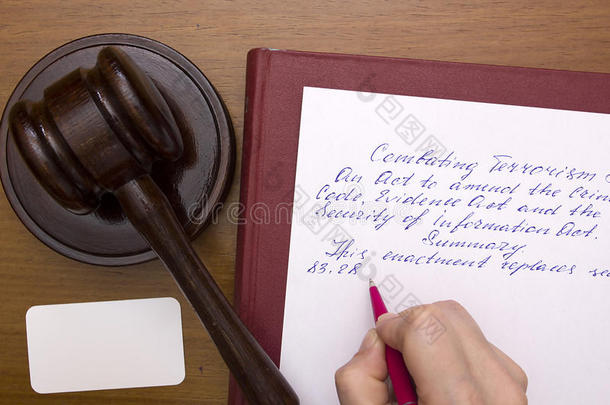 Combating Terrorism
An Act to amend the Crim
Code, Evidence Act and the
Security of Information Act.
Summary
This enactment replaces sec
83.28